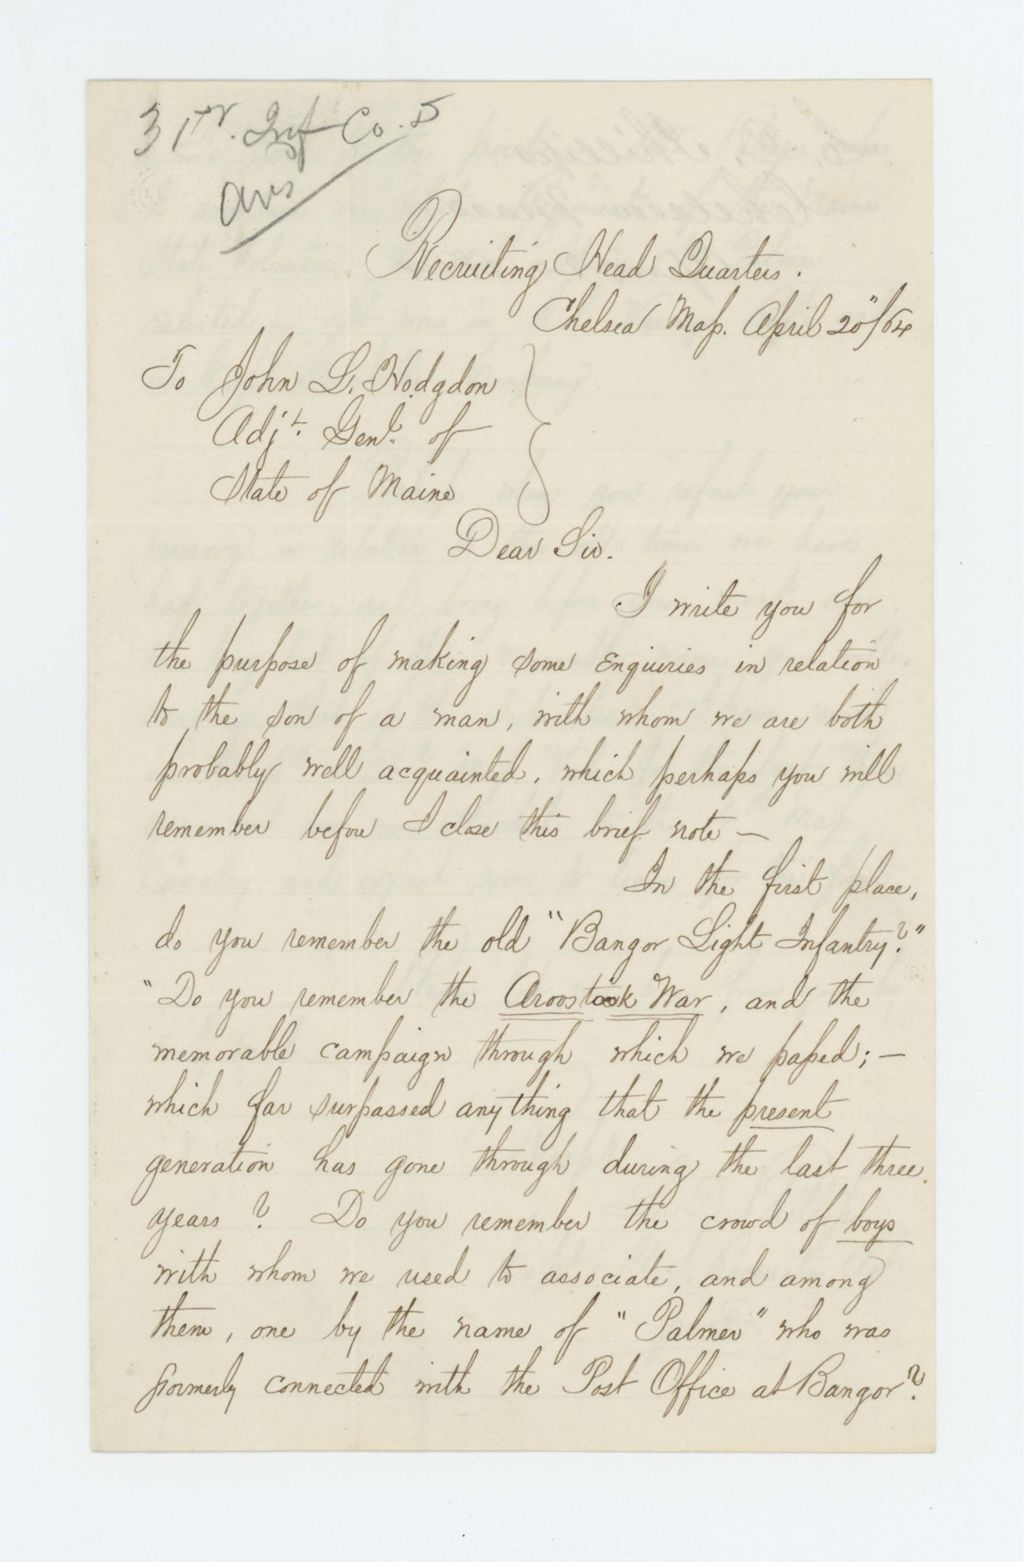 31st. Inf Co. D
Ans
Recruiting Head Quarters.
Chelsea Mass. April 20"/64
To John L. Hodgdon
Adjt. Genl. of
State of Maine
Dear Sir.
I write you for
the purpose of making some Enquiries in relation
to the son of a man, with whom we are both
probably well acquainted, which perhaps you will
remember before I close this brief note —
In the first place,
do you remember the old "Bangor Light Infantry?"
"Do you remember the Aroostook War, and the
memorable campaign through which we passed; —
which far surpassed anything that the present
generation has gone through during the last three
years? Do you remember the crowd of boys
with whom we used to associate, and among
them, one by the name of "Palmer" who was
formerly connected with the Post Office at Bangor?